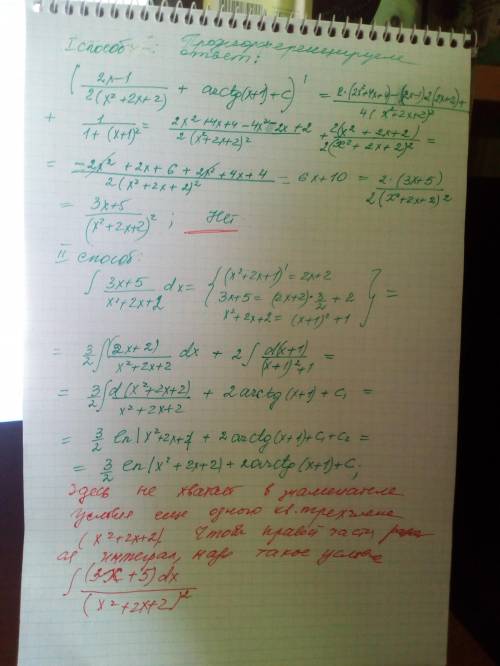 I способ: Продифференцируем
ответ:
( (2x-1)/(2(x²+2x+2)) + arctg(x+1)+C )' = (2·(2x²+4x+4)-(2x-1)2(2x+2))/(4(x²+2x+2)²) +
+ 1/(1+(x+1)²) = (2x²+4x+4-4x²-2x+2)/(2(x²+2x+2)²) + (2(x²+2x+2))/(2(x²+2x+2)²) =
= (-2x²+2x+6+2x²+4x+4)/(2(x²+2x+2)²) = 6x+10 = (2·(3x+5))/(2(x²+2x+2)²)
= (3x+5)/(x²+2x+2)² ; Нет
II способ:
∫ (3x+5)/(x²+2x+2) dx = { (x²+2x+1)' = 2x+2
3x+5 = (2x+2)·3/2 + 2
x²+2x+2 = (x+1)²+1 } =
= 3/2 ∫ (2x+2)/(x²+2x+2) dx + 2 ∫ d(x+1)/((x+1)²+1) =
= 3/2 ∫ d(x²+2x+2)/(x²+2x+2) + 2 arctg(x+1) + C₁ =
= 3/2 ln|x²+2x+2| + 2 arctg(x+1)+C₁+C₂ =
= 3/2 ln|x²+2x+2| + 2 arctg(x+1)+C;
Здесь не хватает в знаменателе
условия еще одного кв. трехчлена
(x²+2x+2). Чтоб правой части
ся интеграл, надо такое условие
∫ (3x+5)dx/(x²+2x+2)²